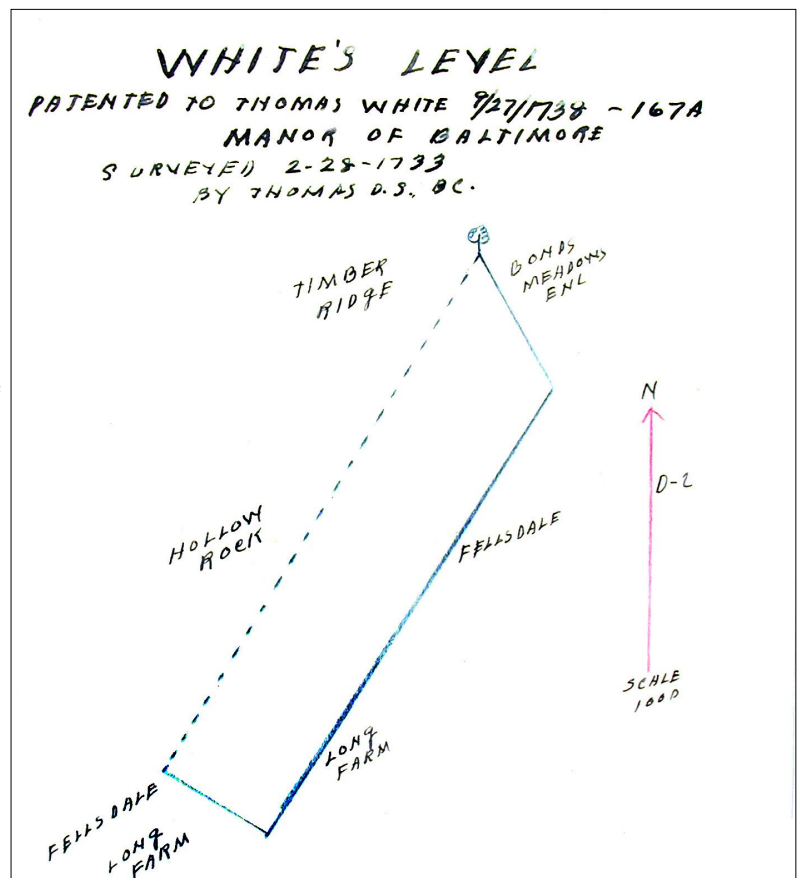 WHITE'S LEVEL
PATENTED TO THOMAS WHITE 9/27/1738 - 167A
MANOR OF BALTIMORE
SURVEYED 2-28-1733
BY THOMAS D.S., BC.
TIMBER
RIDGE
BONDS
MEADOWS
ENL
N
D-2
HOLLOW
ROCK
FELLSDALE
SCALE
100D
LONG
FARM
FELLSDALE
LONG
FARM